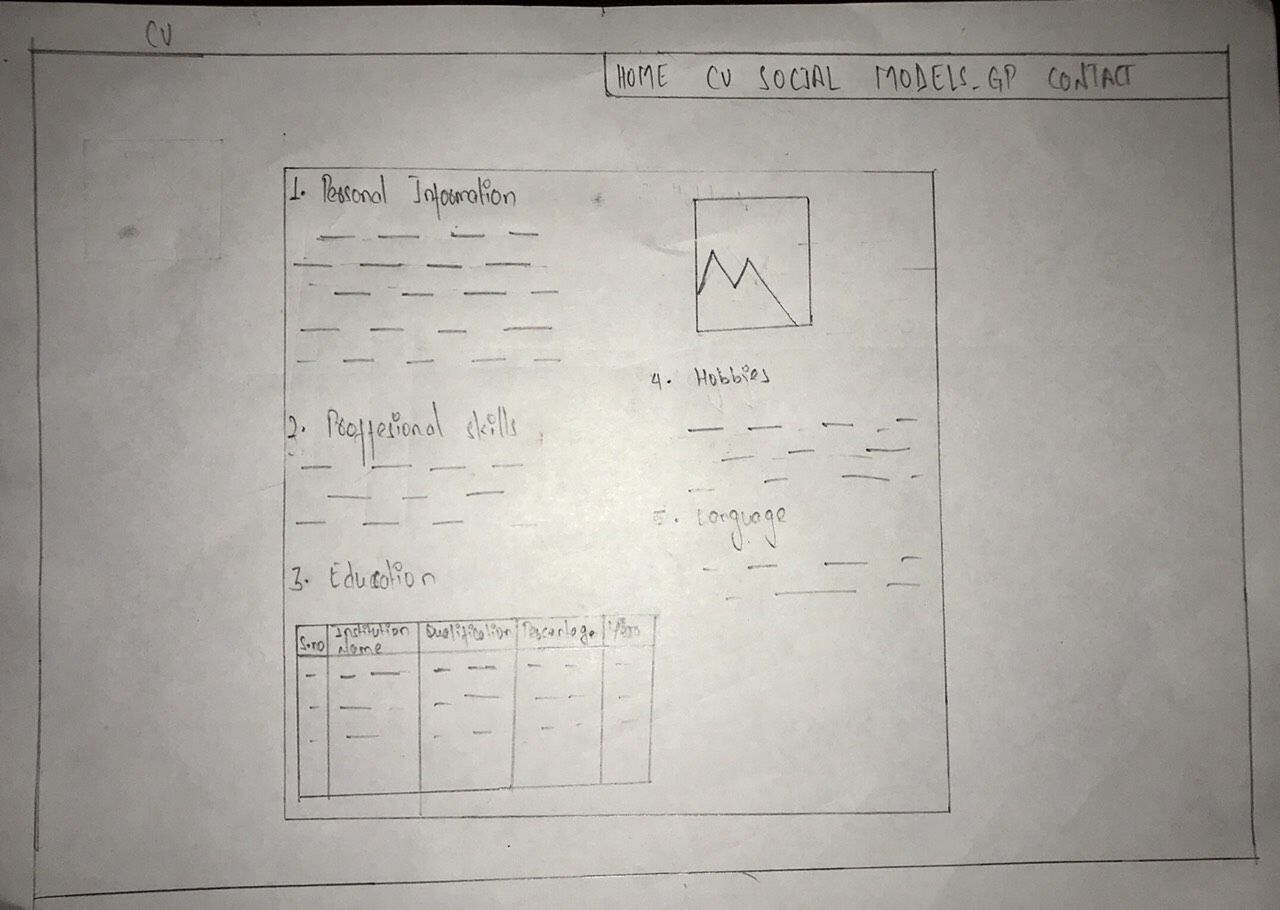 CV
HOME CV SOCIAL MODELS_GP CONTACT
1. Personal Information
2. Proffesional skills
3. Education
S.no Institution Name Qualification Percentage Year
4. Hobbies
5. Language